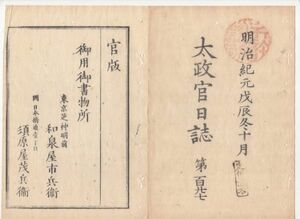 明治紀元戊辰冬十月
太政官日誌
第百廿七
官版
御用御書物所
東京芝神明前
和泉屋市兵衛
同日本橋通壹丁目
須原屋茂兵衛